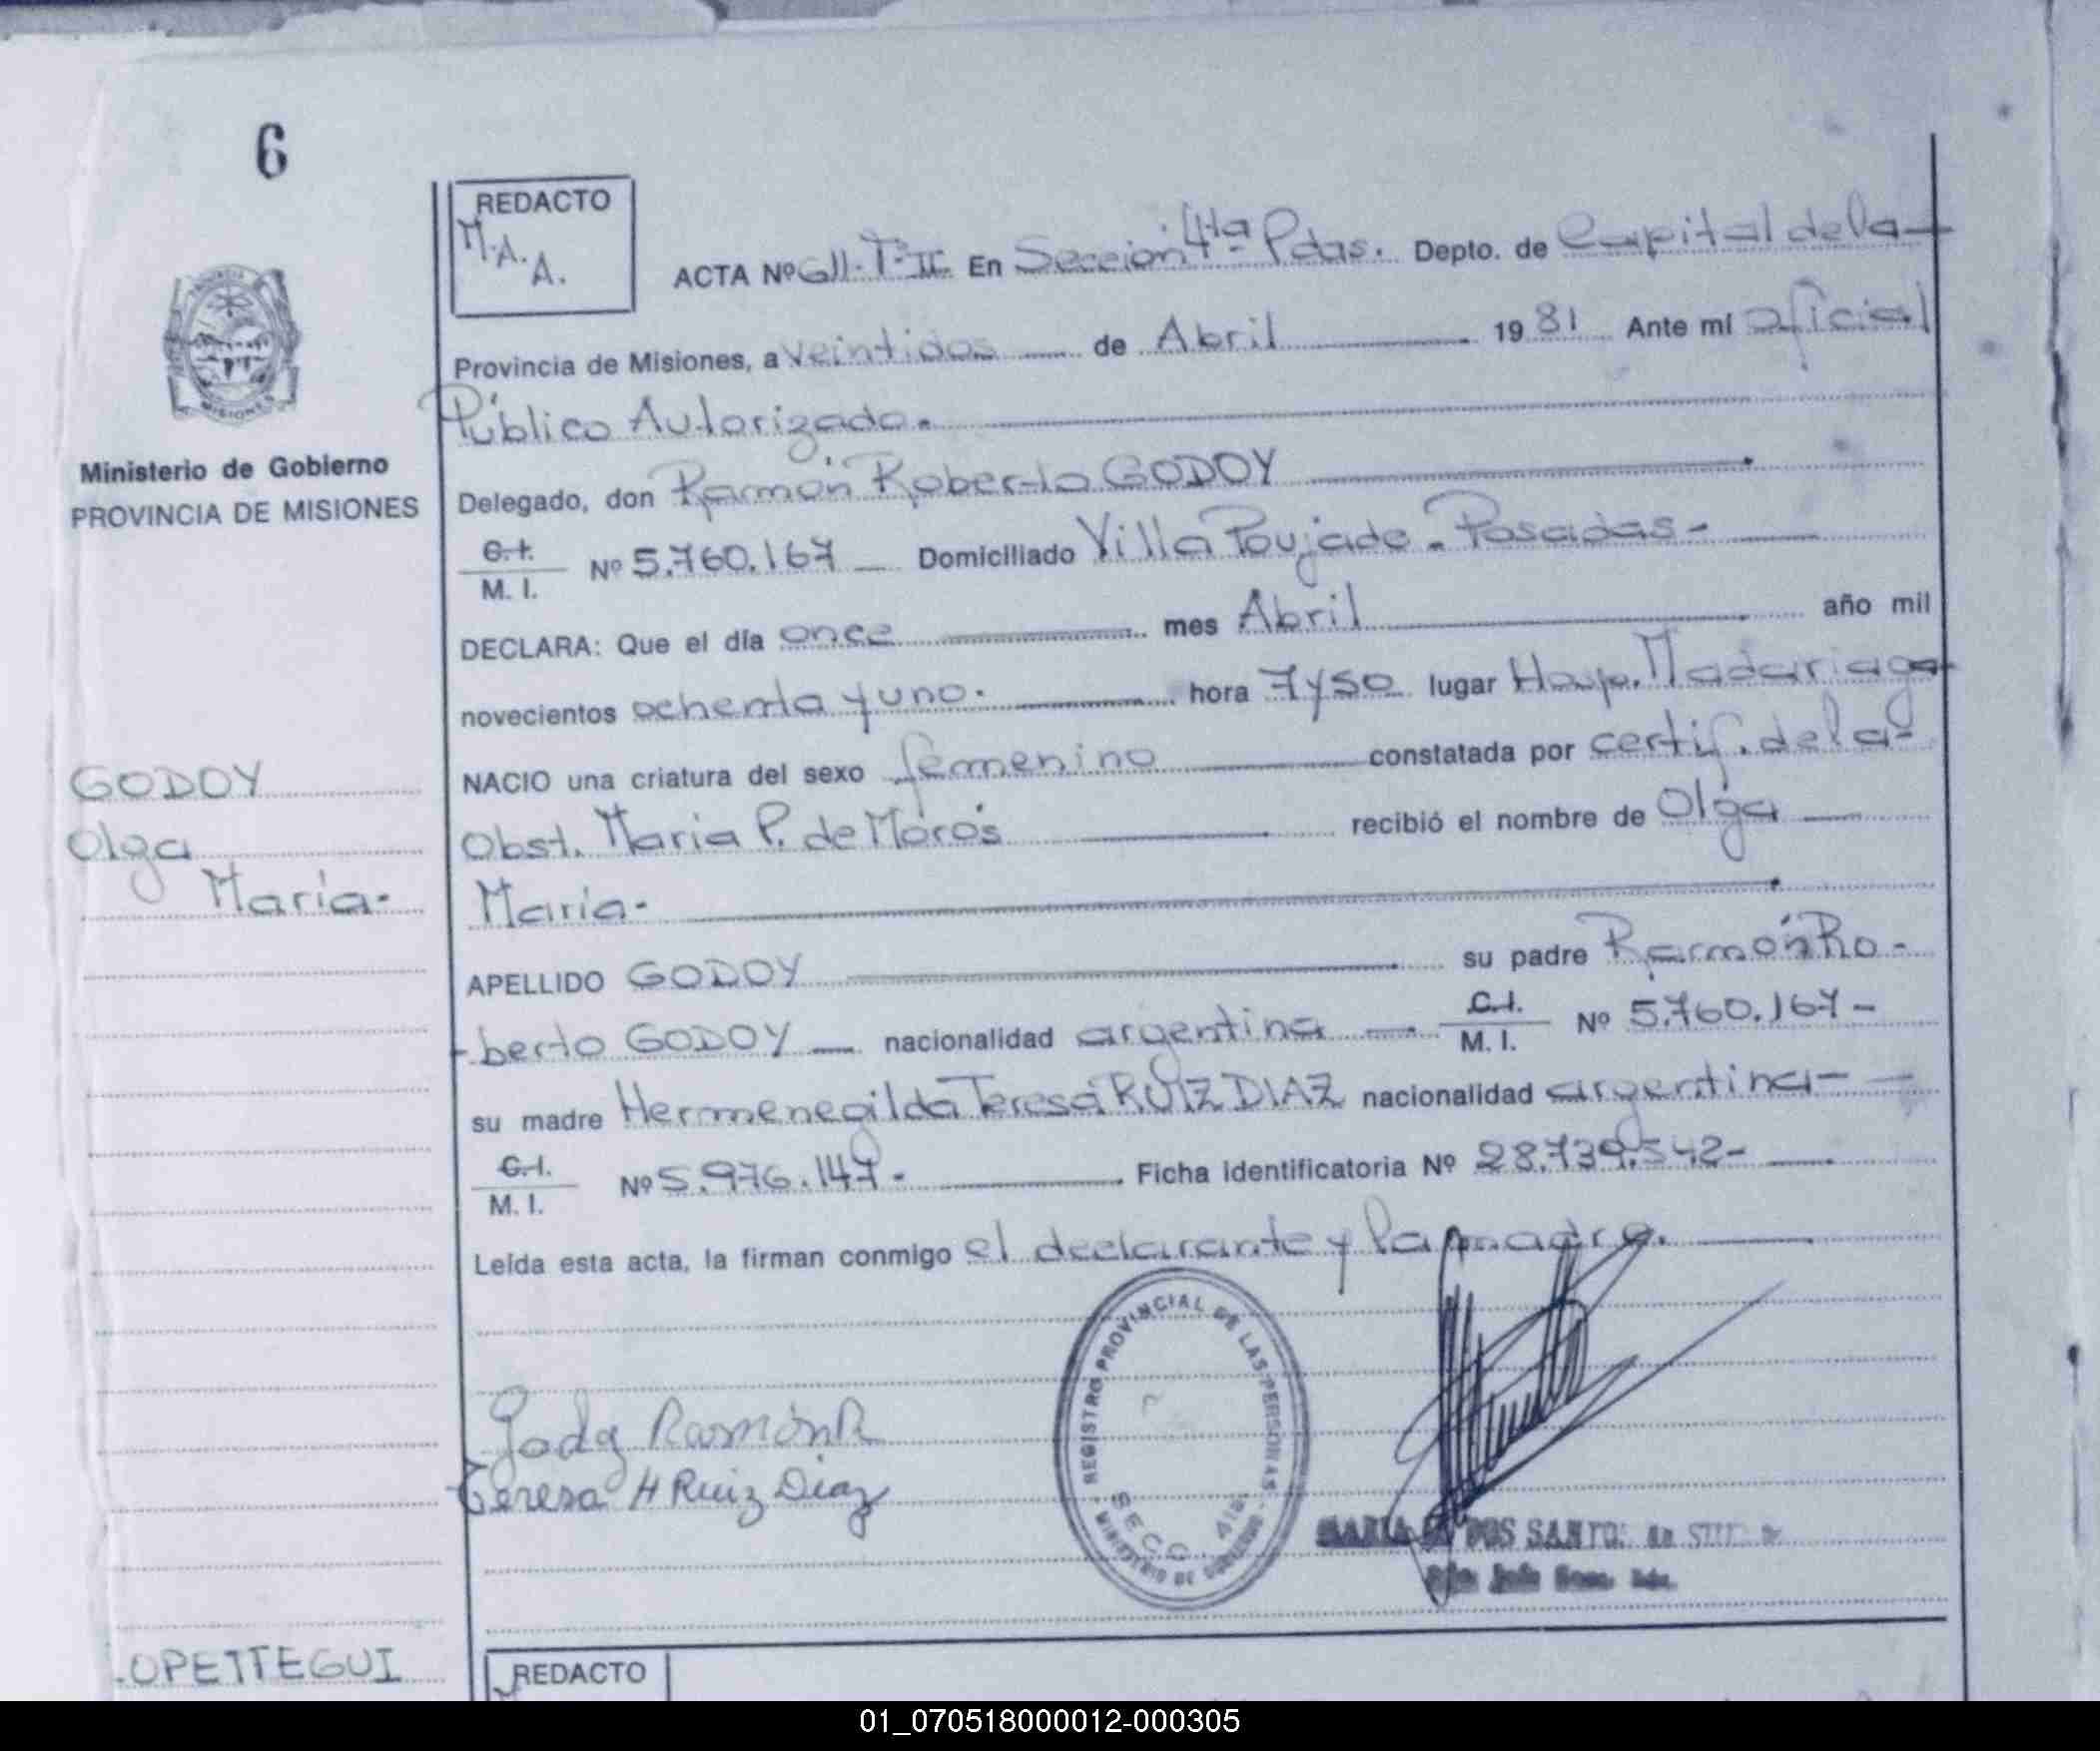 6
REDACTO
M.A.
A.
ACTA Nº 611-Tº II En Sección 4ta Pdas. Depto. de Capital de la
Provincia de Misiones, a veintidos de Abril 1981 Ante mí oficial
Público Autorizado.
Ministerio de Gobierno
PROVINCIA DE MISIONES
Delegado, don Ramón Roberto GODOY
C.I.
M. I. Nº 5.760.167 Domiciliado Villa Poujade - Posadas -
DECLARA: Que el día once mes Abril año mil
novecientos ochenta y uno. hora 7 y 50 lugar Hosp. Madariaga
NACIO una criatura del sexo femenino constatada por certif. de la
Obst. Maria P. de Moros recibió el nombre de Olga
María-
GODOY
Olga
María-
APELLIDO GODOY su padre Ramón Ro-
berto GODOY nacionalidad argentina C.I.
M. I. Nº 5.760.167-
su madre Hermenegilda Teresa RUIZ DIAZ nacionalidad argentina-
C.I.
M. I. Nº 5.976.147- Ficha identificatoria Nº 28.739.542-
Leída esta acta, la firman conmigo el declarante y la madre.
Godoy Ramón R
Teresa H Ruiz Diaz
REGISTRO PROVINCIAL DE LAS PERSONAS
MINISTERIO DE GOBIERNO
SECC. 4ta.
MARIA DOS SANTOS
OPETTEGUI
REDACTO
01_070518000012-000305